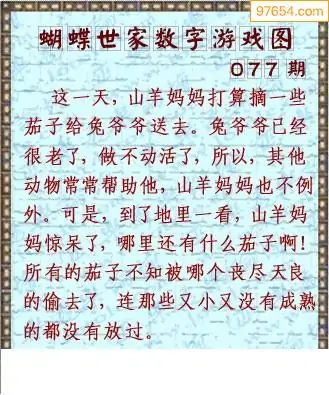 97654.com
蝴蝶世家数字游戏图
077期
这一天，山羊妈妈打算摘一些
茄子给兔爷爷送去。兔爷爷已经
很老了，做不动活了，所以，其他
动物常常帮助他，山羊妈妈也不例
外。可是，到了地里一看，山羊妈
妈惊呆了，哪里还有什么茄子啊！
所有的茄子不知被哪个丧尽天良
的偷去了，连那些又小又没有成熟
的都没有放过。